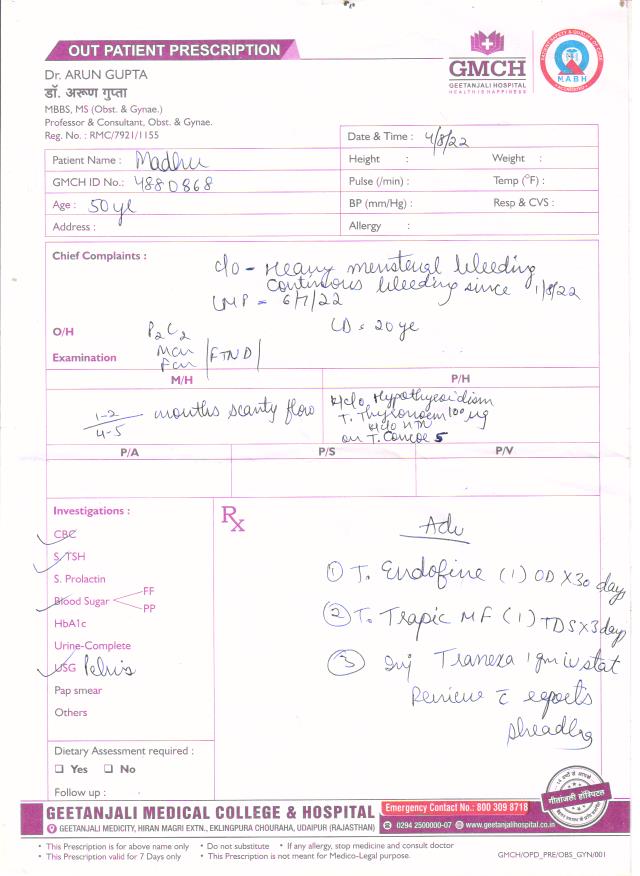 OUT PATIENT PRESCRIPTION
GMCH
GEETANJALI HOSPITAL
HEALTH IS HAPPINESS
Dr. ARUN GUPTA
डॉ. अरूण गुप्ता
MBBS, MS (Obst. & Gynae.)
Professor & Consultant, Obst. & Gynae.
Reg. No. : RMC/7921/1155
Date & Time : 4/8/22
Patient Name : Madhu
Height : Weight :
GMCH ID No.: 4880868
Pulse (/min) : Temp (°F) :
Age : 50 ye
BP (mm/Hg) : Resp & CVS :
Address :
Allergy :
Chief Complaints :
c/o - Heavy menstrual bleeding
Continuous bleeding since 1/8/22
LMP = 6/7/22
LD = 20 ye
O/H
P2L2
FTND
Examination
M/H P/H
1-2/4-5 months scanty flow
K/c/o Hypothyroidism
T. Thyronorm 100 ug
K/c/o HTN
on T. Concor 5
P/A P/S P/V
Investigations :
CBC
S. TSH
S. Prolactin
Blood Sugar FF
PP
HbA1c
Urine-Complete
USG Pelvis
Pap smear
Others
Rx
Adv
1 T. Endofine (1) OD X 30 days
2 T. Trapic MF (1) TDS X 3 days
3 Inj Tranexa 1 gm iv stat
Review c reports
Dietary Assessment required :
Yes No
Follow up :
GEETANJALI MEDICAL COLLEGE & HOSPITAL
GEETANJALI MEDICITY, HIRAN MAGRI EXTN., EKLINGPURA CHOURAHA, UDAIPUR (RAJASTHAN)
Emergency Contact No.: 800 309 8718
0294 2500000-07 www.geetanjalihospital.co.in
गीतांजली हॉस्पिटल
• This Prescription is for above name only • Do not substitute • If any allergy, stop medicine and consult doctor
• This Prescription valid for 7 Days only • This Prescription is not meant for Medico-Legal purpose.
GMCH/OPD_PRE/OBS_GYN/001